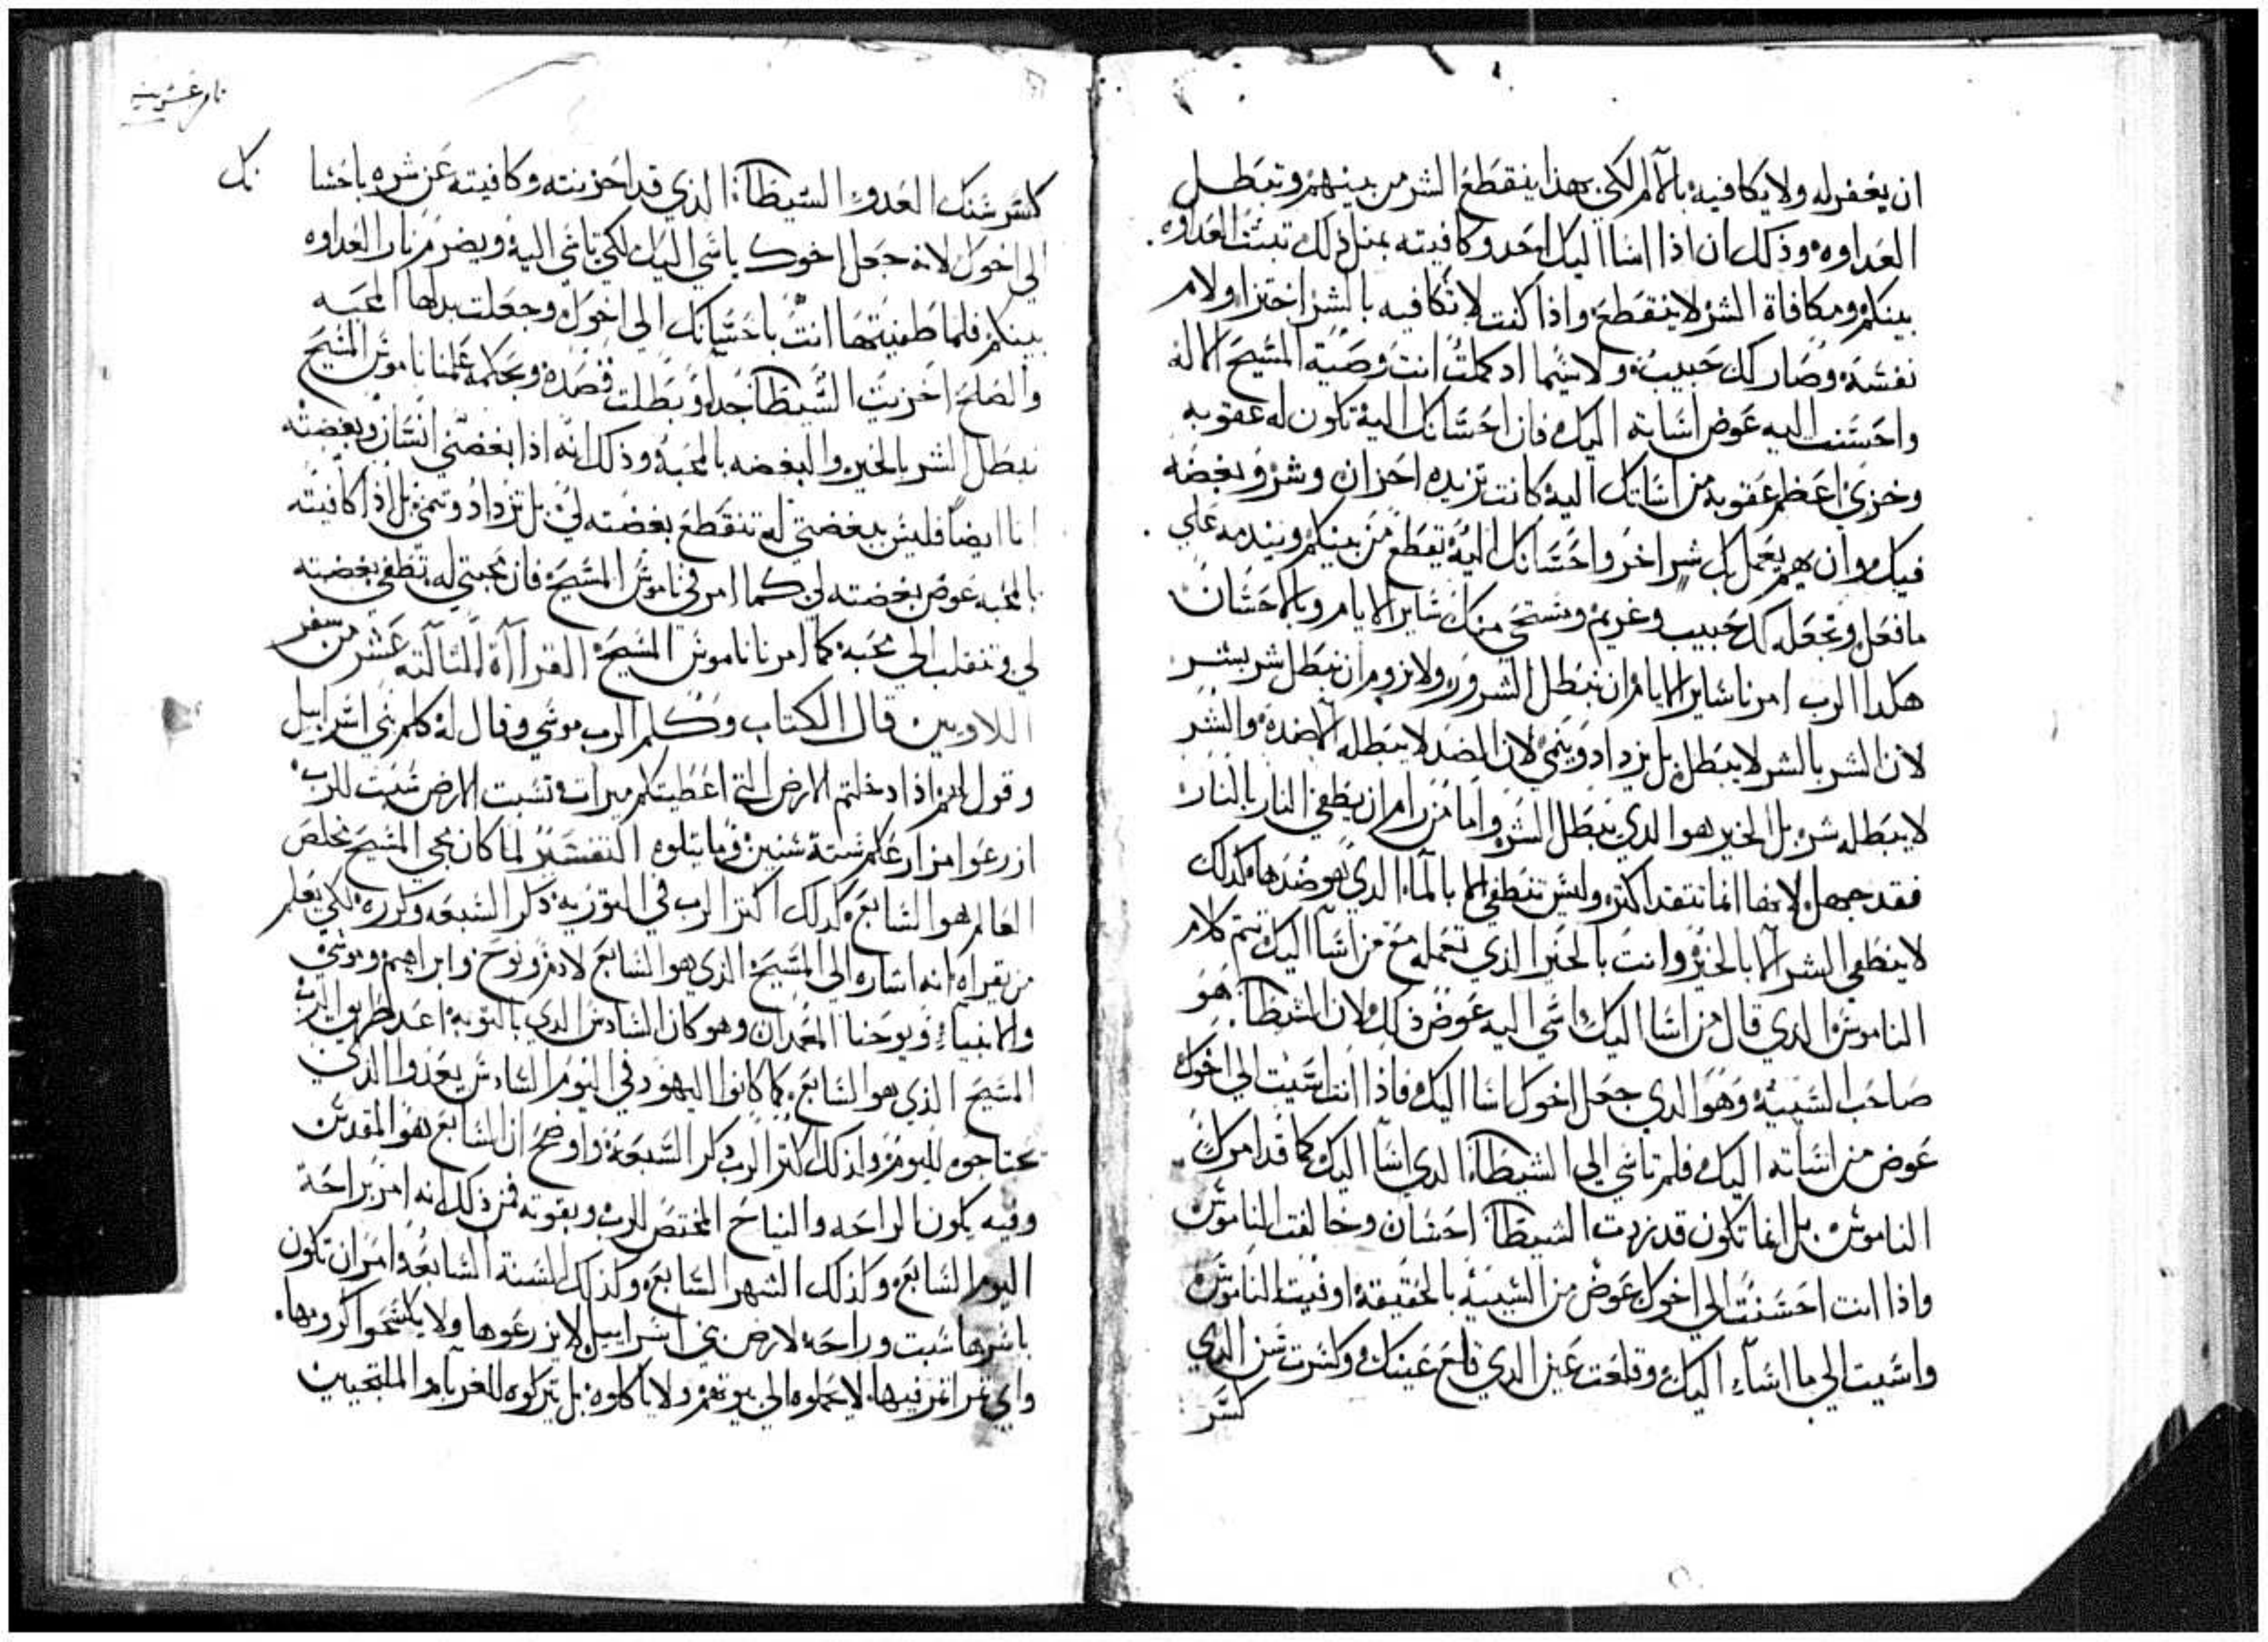 ان يغفر له ولا يكافيه بالآلام لكي بهذا ينقطع الشر من بينهم وتبطل
العداوه وذلك ان اذا اسا اليك احد وكافيته بمثل ذلك تبتت العداوه
بينكم ومكافاة الشر لا ينقطع واذا كنت لا تكافيه بالشر اختزا ولام
نفسه وصار لك حبيب ولا سيما اد كملت انت وصية المسيح الاله
واحسنت اليه عوض اساته اليك فان احسانك اليه تكون له عقوبه
وخزي اعظم عقوبه من اساتك اليه كانت تزيده احزان وشر وبغضه
فيك وان هم يعمل بك شر اخر واحسانك اليه يقطع من بينكم ويندمه علي
ما فعل وتجعله لك حبيب وغريم ويستحي منك ساير الايام وبالاحسان
هكدا الرب امرنا ساير الايام ان نبطل الشرور ولا نروم ان نبطل شر بشر
لان الشر بالشر لا يبطل بل يزداد وينمي لان الضد لا يبطله الا ضده والشر
لا يبطله شر بل الخير هو الدي يبطل الشر واما من رام ان يطفي النار بالنار
فقد جهل لانها انما تتقد اكتر وليس تنطفي الا بالماء الدي هو ضدها كدلك
لا ينطفي الشر الا بالخير وانت بالخير الذي تعمله مع من اسا اليك تتم كلام
الناموس الدي قال من اسا اليك اسي اليه عوض ذلك لان الشيطان هو
صاحب السيية وهو الدي جعل اخوك اسا اليك فاذا انت اسيت الي اخوك
عوض من اساته اليك فلم تاسي الي الشيطان الدي اسا اليك كما قد امرك
الناموس بل انما تكون قد زدت الشيطان احسان وخالفت الناموس
واذا انت احسنت الي اخوك عوض من السيية بالحقيقة اوفيت الناموس
واسيت الي ما اساء اليك وقلعت عين الدي قلع عينك وكسرت سن الدي
كسر
كسر سنك العدو الشيطان الذي قد احزنته وكافيته عن شره باحسا نك
الي اخوك لانه جعل اخوك ياسي اليك لكي تاسي اليه ويضرم نار العداوه
بينكم فلما طفيتها انت باحسانك الي اخوك وجعلت بدلها المحبه
والصلح احزنت الشيطان جدا وبطلت قصده وبحكمه علمنا ناموس المسيح
نبطل الشر بالخير والبغضه بالمحبة وذلك انه اذا بغضني انسان وبغضته
انا ايضا فليس ببغضتي له تنقطع بغضته لي بل تزداد وتنمي بل اذا كافيته
بالمحبه عوض بغضته لي كما امر في ناموس المسيح فان محبتي له تطفي بغضته
لي وتنقلب الي محبة كما امرنا ناموس المسيح القراآة التالته عشر من سفر
اللاويين قال الكتاب وكلم الرب موسي وقال له كلم بني اسراييل
وقول لهم اذا دخلتم الارض التي اعطيتكم ميرات تسبت الارض سبت للرب
ازرعوا مزارعكم ستة سنين وما يتلوه التفسير لما كان مجي المسيح مخلص
العالم هو السابع كدلك اكتر الرب في التورية دكر السبعه وكرره لكي يعلم
من يقراه انه اشاره الي المسيح الذي هو السابع لادم ونوح وابراهيم وموسي
والانبياء ويوحنا المعمدان وهو كان السادس الدي بالتوبة اعد طريق الرب
المسيح الذي هو السابع كما كانوا اليهود في اليوم السادس يعدوا الذي
يحتاجوه لليوم ولذلك اكتر الرب دكر السبعة واوضح ان السابع هو المقدس
وفيه يكون الراحه والنياح المختص للرب وبقوته فمن ذلك انه امر براحة
اليوم السابع وكذلك الشهر السابع وكذلك السنة السابعة امر ان تكون
باسرها سبت وراحه لارض بني اسراييل لا يزرعوها ولا يكسحوا كرومها
واي تمر اتمر فيها لا يحملوه الي بيوتهم ولا ياكلوه بل يتركوه للغرباء والملتجيين